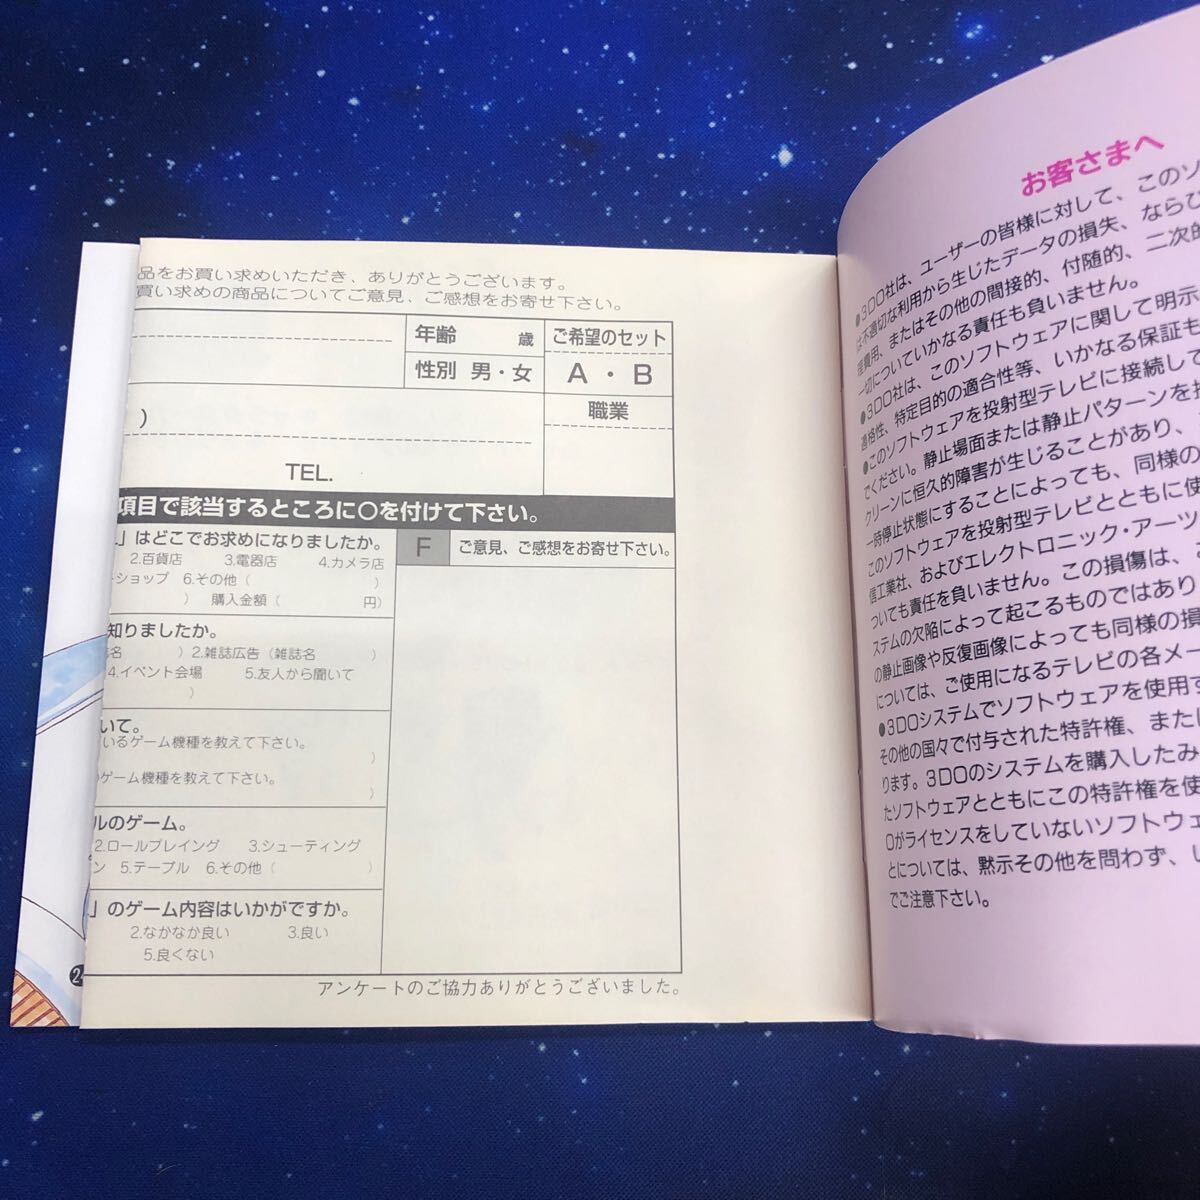 品をお買い求めいただき、ありがとうございます。
買い求めの商品についてご意見、ご感想をお寄せ下さい。
年齢 歳
ご希望のセット
性別 男・女
A・B
職業
)
TEL.
項目で該当するところに○を付けて下さい。
」はどこでお求めになりましたか。
2.百貨店 3.電器店 4.カメラ店
ショップ 6.その他( )
) 購入金額( 円)
F ご意見、ご感想をお寄せ下さい。
知りましたか。
名 ) 2.雑誌広告(雑誌名 )
4.イベント会場 5.友人から聞いて
)
いて。
いるゲーム機種を教えて下さい。
)
のゲーム機種を教えて下さい。
)
ルのゲーム。
2.ロールプレイング 3.シューティング
ン 5.テーブル 6.その他( )
」のゲーム内容はいかがですか。
2.なかなか良い 3.良い
5.良くない
アンケートのご協力ありがとうございました。
2
お客さまへ
●3DO社は、ユーザーの皆様に対して、このソ
は不適切な利用から生じたデータの損失、ならび
産費用、またはその他の間接的、付随的、二次的
一切についていかなる責任も負いません。
●3DO社は、このソフトウェアに関して明示
適格性、特定目的の適合性等、いかなる保証も
●このソフトウェアを投射型テレビに接続して
でください。静止場面または静止パターンを投
クリーンに恒久的障害が生じることがあり、
一時停止状態にすることによっても、同様の
このソフトウェアを投射型テレビとともに使
信工業社、およびエレクトロニック・アーツ
ついても責任を負いません。この損傷は、こ
ステムの欠陥によって起こるものではあり
の静止画像や反復画像によっても同様の損
については、ご使用になるテレビの各メー
●3DOシステムでソフトウェアを使用す
その他の国々で付与された特許権、また
ります。3DOのシステムを購入したみ
たソフトウェアとともにこの特許権を使
Oがライセンスをしていないソフトウェ
とについては、黙示その他を問わず、い
でご注意下さい。